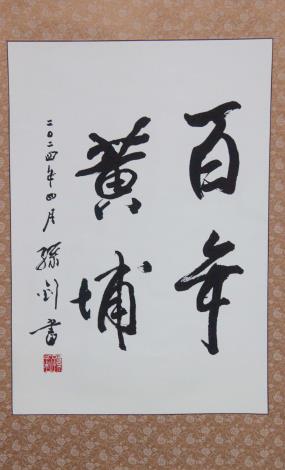 百年
黄埔
二〇二四年四月 孙剑书